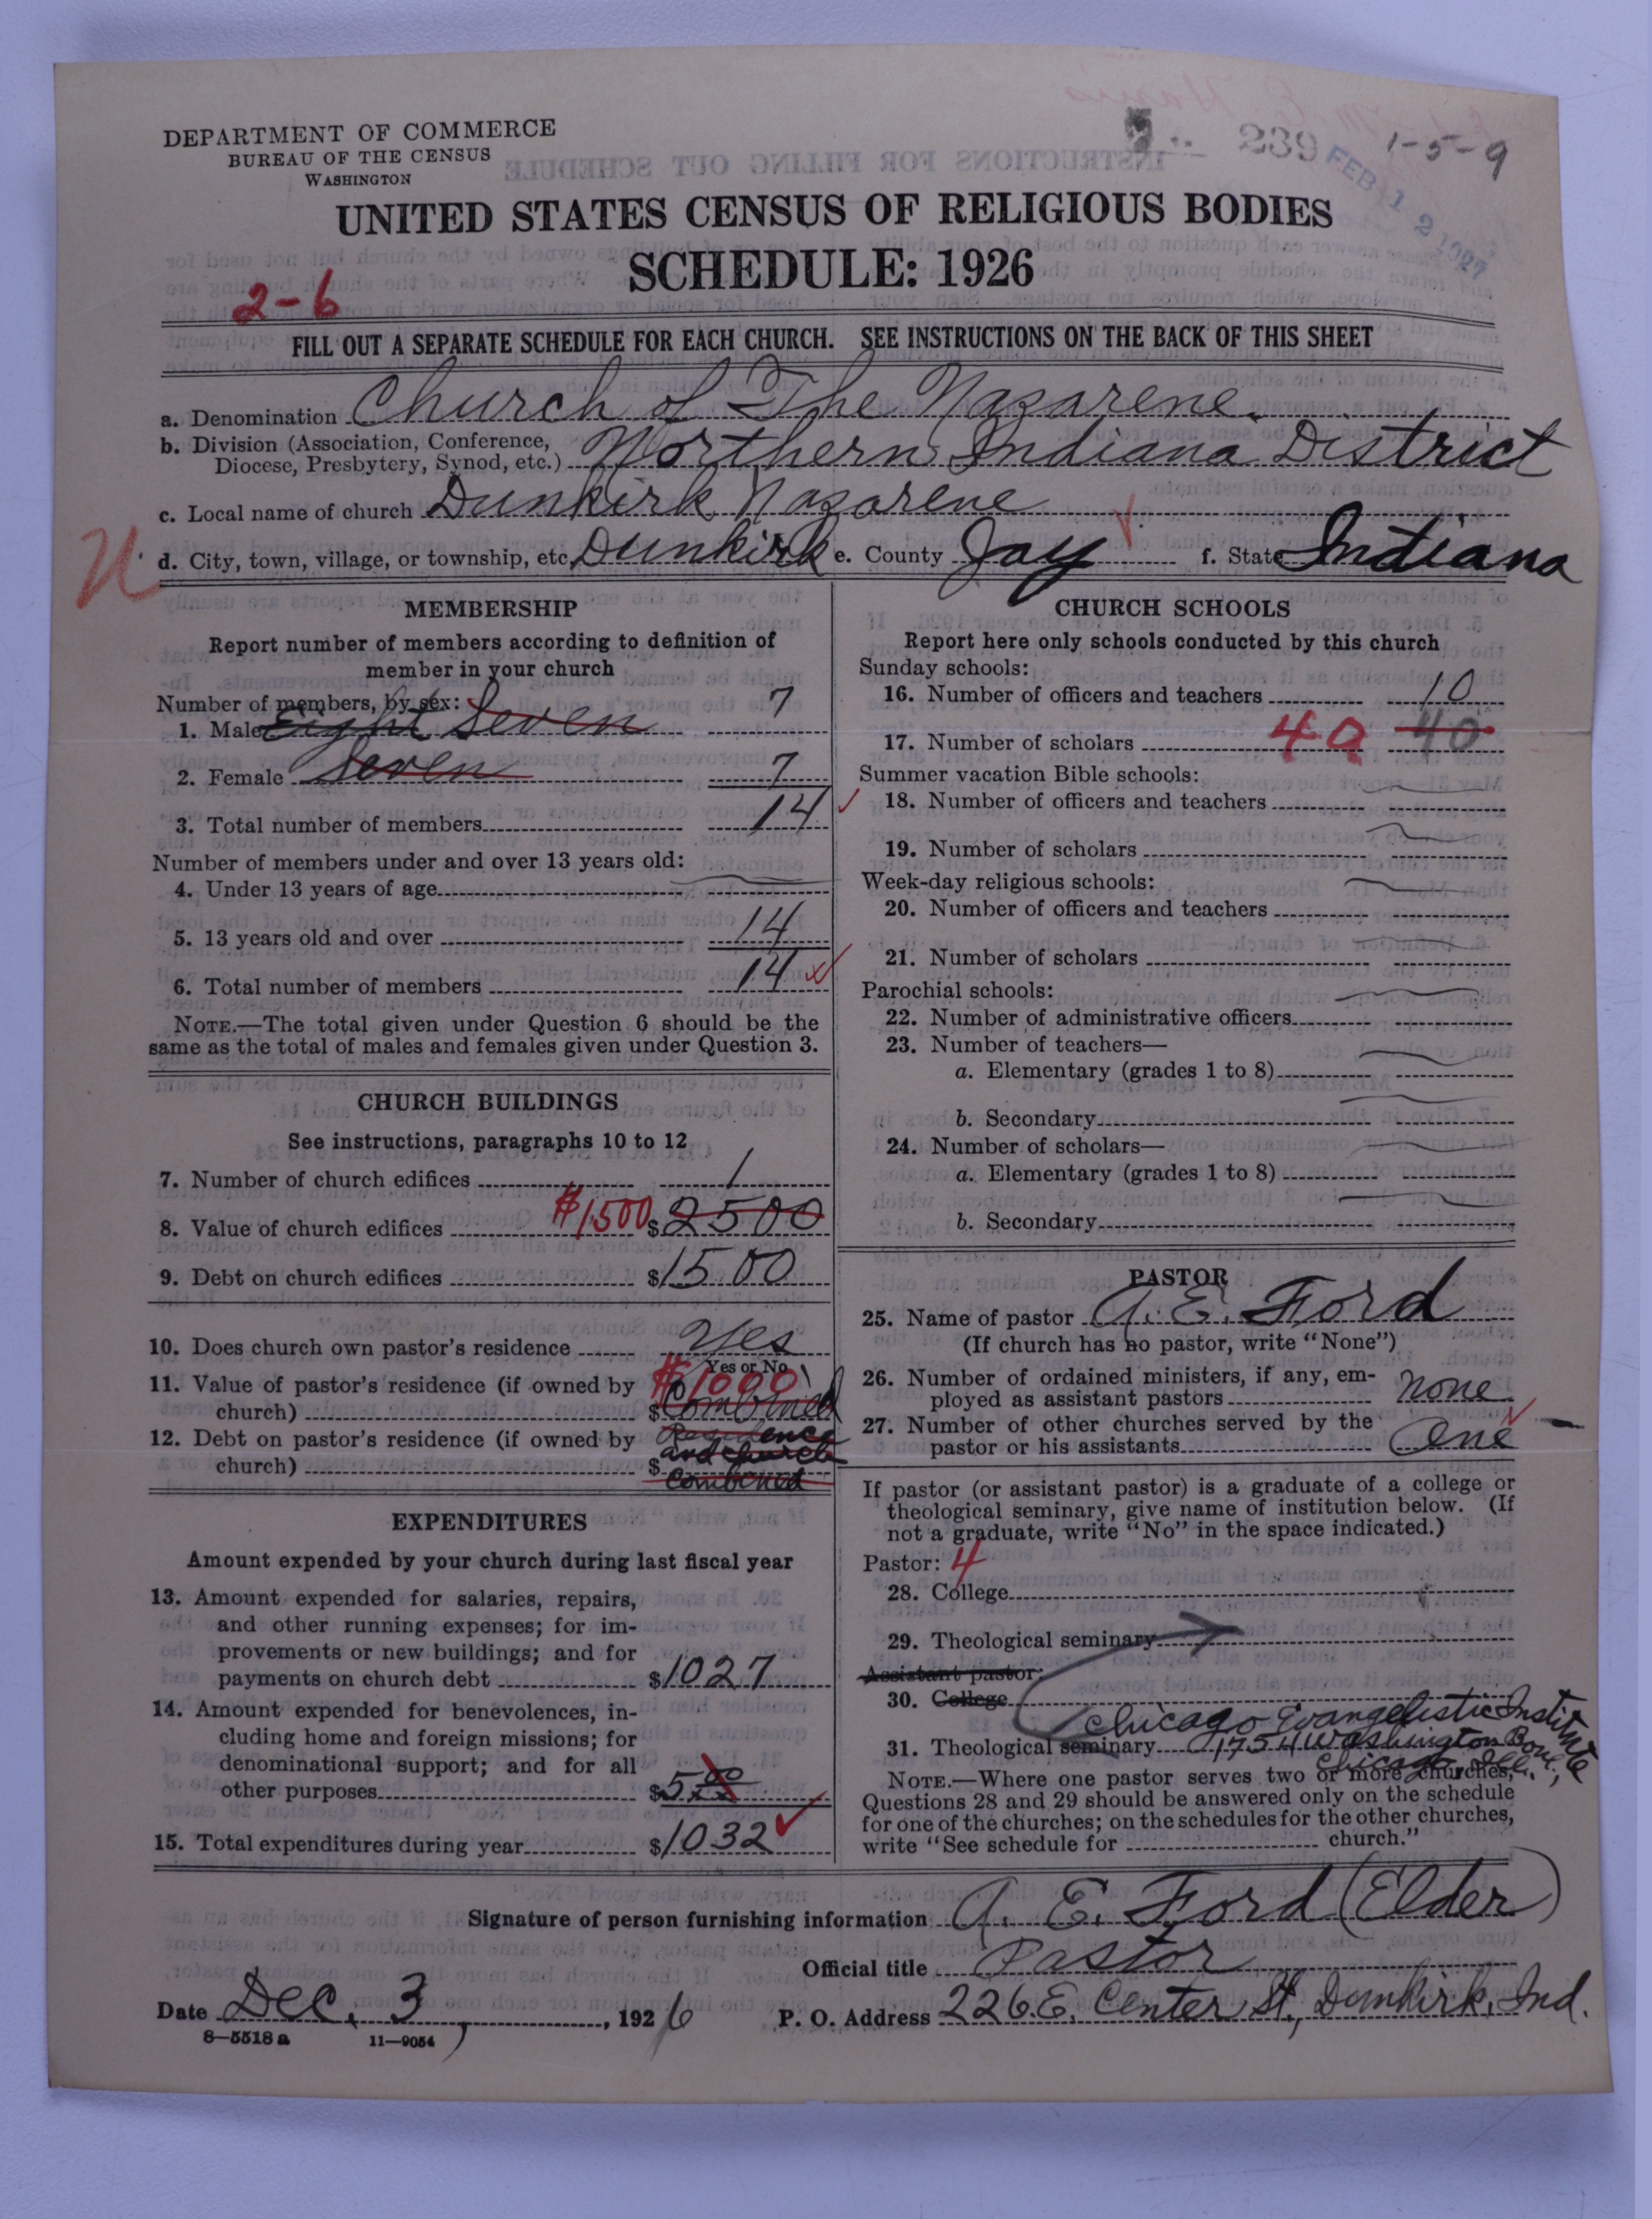 DEPARTMENT OF COMMERCE
BUREAU OF THE CENSUS
WASHINGTON
239 FEB 12 1927 1-5-9
UNITED STATES CENSUS OF RELIGIOUS BODIES
SCHEDULE: 1926
2-6
FILL OUT A SEPARATE SCHEDULE FOR EACH CHURCH. SEE INSTRUCTIONS ON THE BACK OF THIS SHEET
a. Denomination Church of The Nazarene.
b. Division (Association, Conference, Diocese, Presbytery, Synod, etc.) Northern Indiana District
c. Local name of church Dunkirk Nazarene
d. City, town, village, or township, etc. Dunkirk e. County Jay f. State Indiana
MEMBERSHIP
Report number of members according to definition of
member in your church
Number of members, by sex:
1. Male Eight Seven 7
2. Female Seven 7
3. Total number of members 14
Number of members under and over 13 years old:
4. Under 13 years of age
5. 13 years old and over 14
6. Total number of members 14
NOTE.—The total given under Question 6 should be the
same as the total of males and females given under Question 3.
CHURCH BUILDINGS
See instructions, paragraphs 10 to 12
7. Number of church edifices 1
8. Value of church edifices $1500 $2500
9. Debt on church edifices $1500
10. Does church own pastor's residence Yes
Yes or No
11. Value of pastor's residence (if owned by
church) $1000 $Combined
12. Debt on pastor's residence (if owned by
church) $ Residence
and church
combined
EXPENDITURES
Amount expended by your church during last fiscal year
13. Amount expended for salaries, repairs,
and other running expenses; for im-
provements or new buildings; and for
payments on church debt $1027
14. Amount expended for benevolences, in-
cluding home and foreign missions; for
denominational support; and for all
other purposes $5.00
15. Total expenditures during year $1032
CHURCH SCHOOLS
Report here only schools conducted by this church
Sunday schools:
16. Number of officers and teachers 10
17. Number of scholars 40 40
Summer vacation Bible schools:
18. Number of officers and teachers
19. Number of scholars
Week-day religious schools:
20. Number of officers and teachers
21. Number of scholars
Parochial schools:
22. Number of administrative officers
23. Number of teachers—
a. Elementary (grades 1 to 8)
b. Secondary
24. Number of scholars—
a. Elementary (grades 1 to 8)
b. Secondary
PASTOR
25. Name of pastor A. E. Ford
(If church has no pastor, write "None")
26. Number of ordained ministers, if any, em-
ployed as assistant pastors none
27. Number of other churches served by the
pastor or his assistants One
If pastor (or assistant pastor) is a graduate of a college or
theological seminary, give name of institution below. (If
not a graduate, write "No" in the space indicated.)
Pastor: 4
28. College
29. Theological seminary
Assistant pastor:
30. College
Chicago Evangelistic Institute
31. Theological seminary 1754 Washington Boul.,
Chicago, Ill.
NOTE.—Where one pastor serves two or more churches,
Questions 28 and 29 should be answered only on the schedule
for one of the churches; on the schedules for the other churches,
write "See schedule for church."
Signature of person furnishing information A. E. Ford (Elder)
Official title Pastor
Date Dec. 3, 1926 P. O. Address 226. E. Center St., Dunkirk, Ind.
8—5518a 11—9054